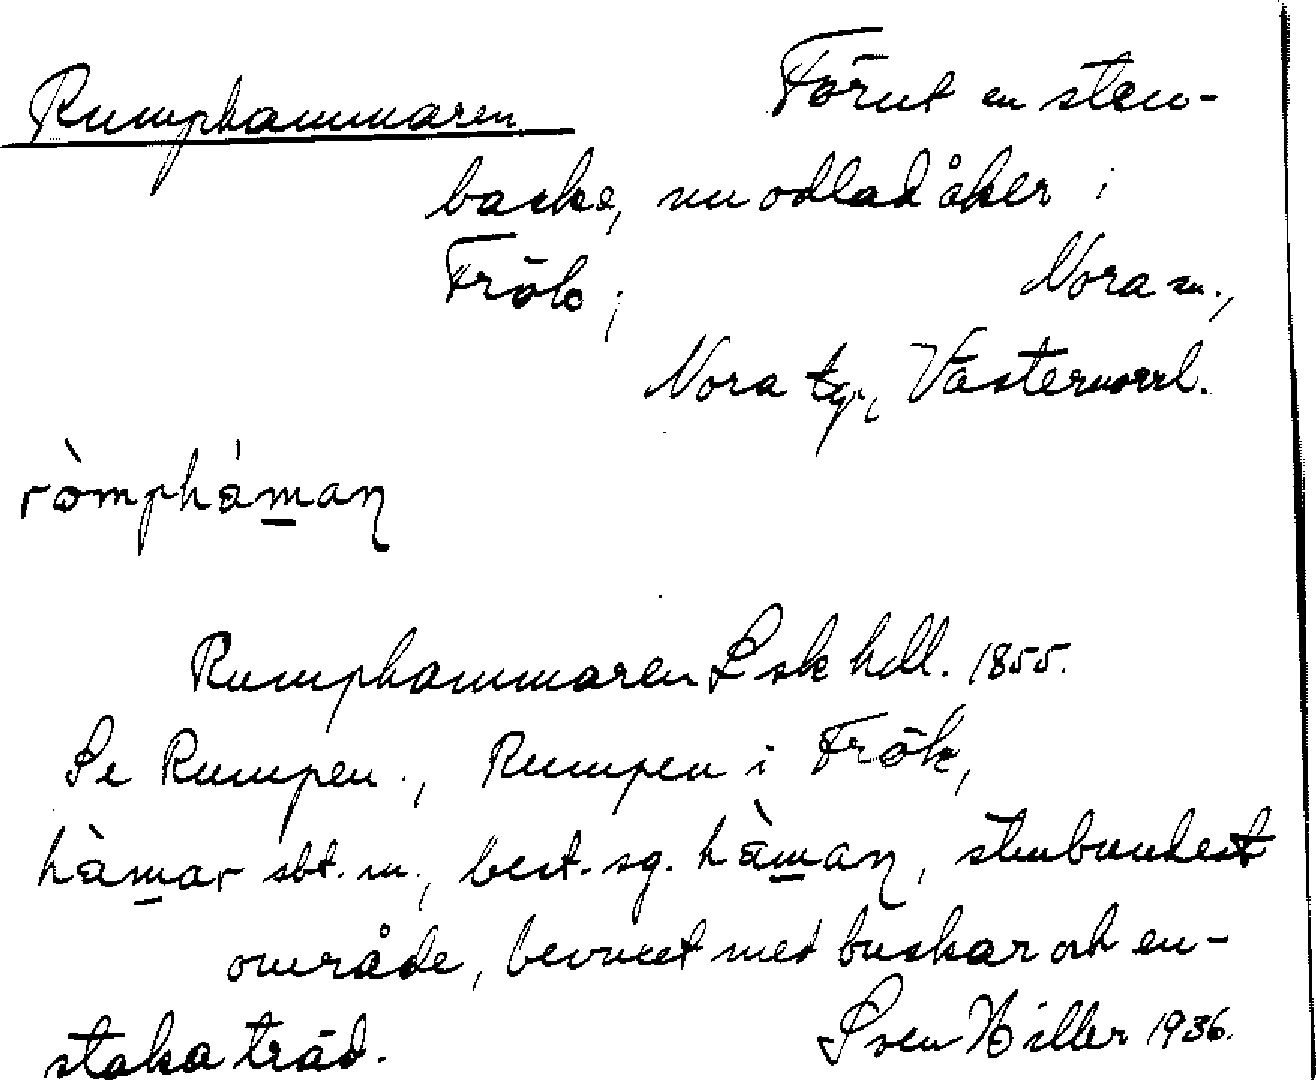 Rumphammaren Förut en sten-
backe, nu odlad åker i
Frök; Nora sn.,
Nora tg., Västernorrl.
ròmphámaη
Rumphammaren Lsk hdl. 1855.
Se Rumpen., Rumpen i Frök,
hàmar sbt. m., best. sg. hàmaη, stenbundest
område, bevuxet med buskar och en-
staka träd. Sven Hiller 1936.